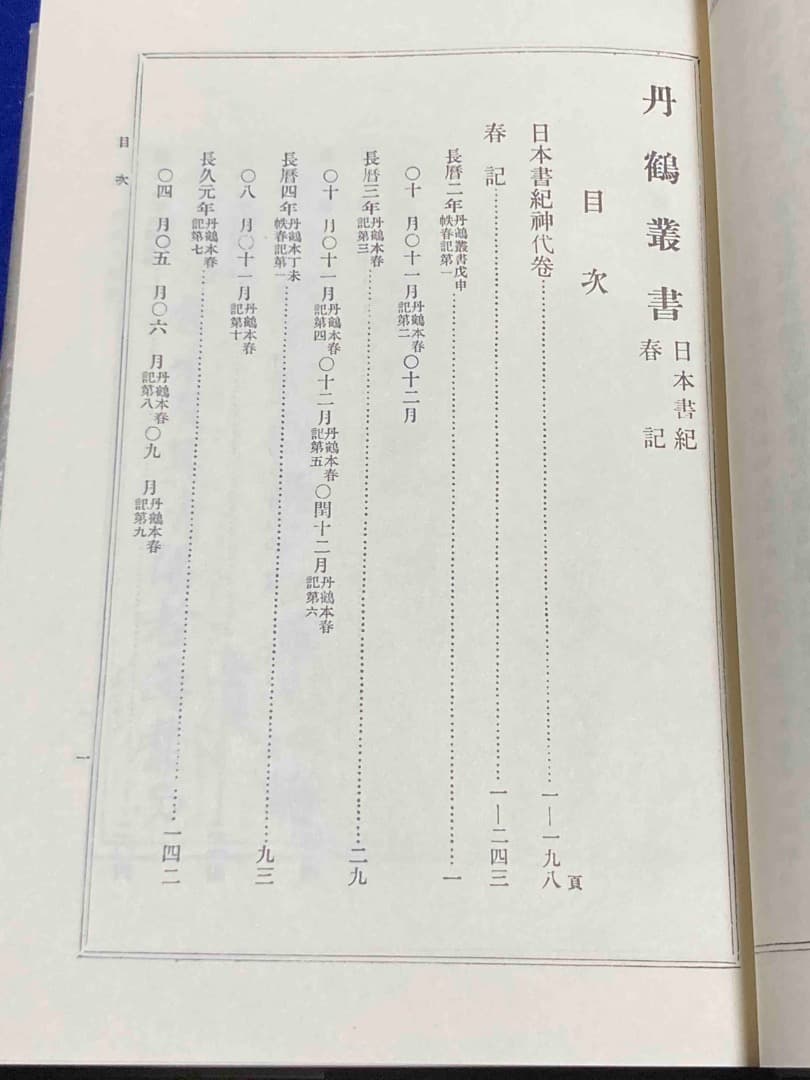 丹鶴叢書 日本書紀 春記
目次
頁
日本書紀神代卷……一―一九八
春記……一―二四三
長曆二年丹鶴叢書戊申帙春記第一……一
〇十月〇十一月丹鶴本春記第二〇十二月
長曆三年丹鶴本春記第三……二九
〇十月〇十一月丹鶴本春記第四〇十二月丹鶴本春記第五〇閏十二月丹鶴本春記第六
長曆四年丹鶴本丁未帙春記第一……九三
〇八月〇十一月丹鶴本春記第十
長久元年丹鶴本春記第七……一四二
〇四月〇五月〇六月丹鶴本春記第八〇九月丹鶴本春記第九
目次
一